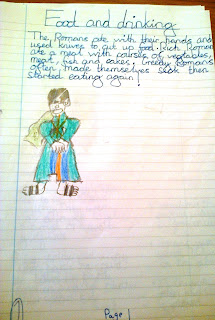 Food and drinking
The Romans ate with their hands and
used knives to cut up food. Rich Romans
ate a meal with courses of vegetables,
meat, fish and cakes. Greedy Romans
often made themselves sick then
started eating again!
Page 1